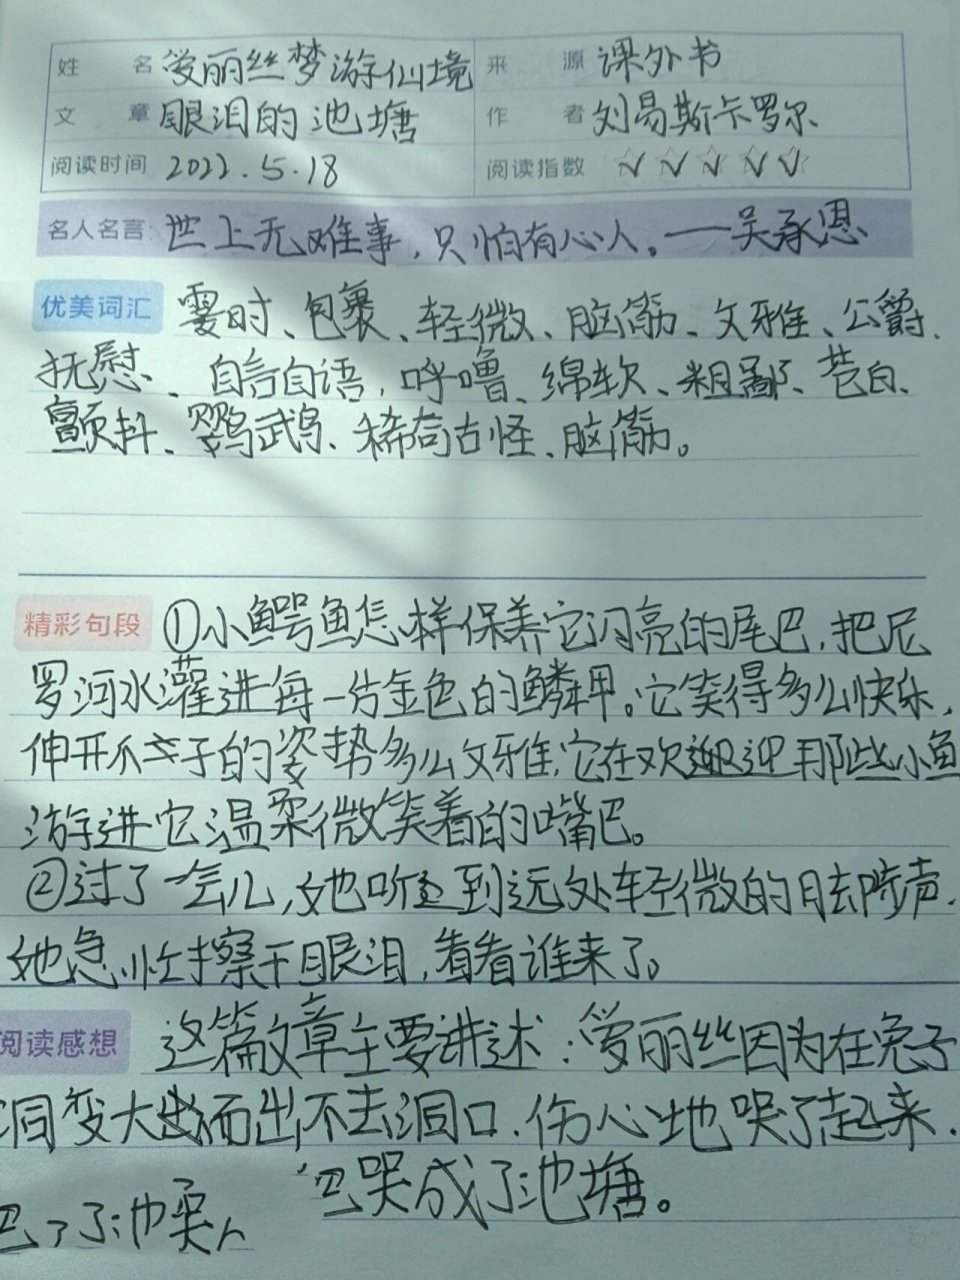 姓 名 爱丽丝梦游仙境 来 源 课外书
文 章 眼泪的池塘 作 者 刘易斯卡罗尔
阅读时间 2022.5.18 阅读指数 ☆☆☆☆☆
名人名言: 世上无难事,只怕有心人。——吴承恩
优美词汇 霎时、包裹、轻微、脑筋、文雅、公爵、
抚慰、自言自语,呼噜、绵软、粗鄙、苍白、
颤抖、鹦鹉、稀奇古怪、脑筋。
精彩句段 ①小鳄鱼怎样保养它闪亮的尾巴,把尼
罗河水灌进每一片金色的鳞甲。它笑得多么快乐,
伸开爪子的姿势多么文雅,它在欢迎那些小鱼
游进它温柔微笑着的嘴巴。
②过了一会儿,她听到远处轻微的脚步声.
她急忙擦干眼泪,看看谁来了。
阅读感想 这篇文章主要讲述:爱丽丝因为在兔子
洞变大而出不去洞口.伤心地哭了起来.
哭成了池塘。